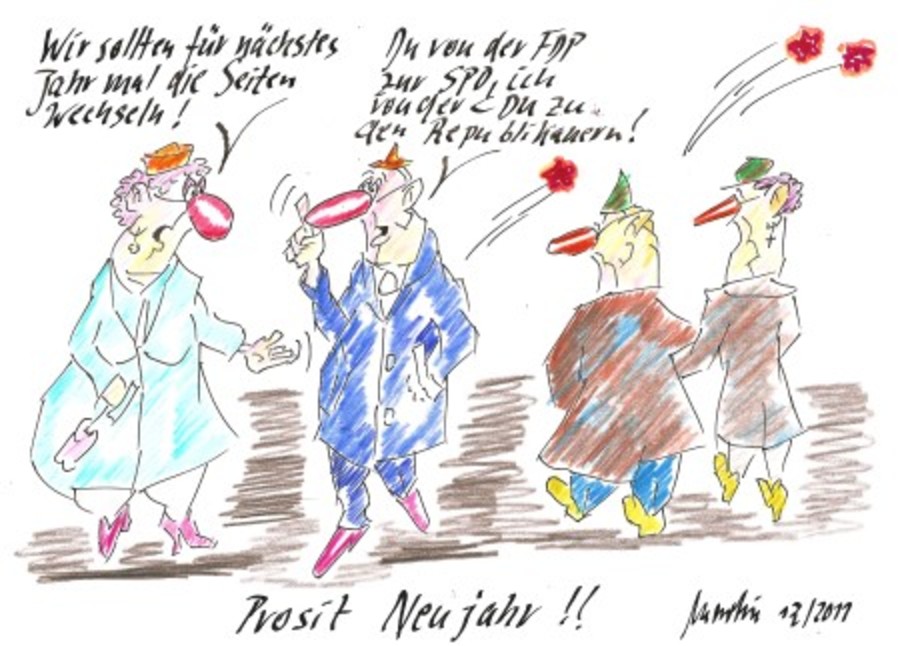 Wir sollten für nächstes
Jahr mal die Seiten
wechseln!
Du von der FDP
zur SPD, ich
von der CDU zu
den Republikanern!
Prosit Neujahr !!
12/2011